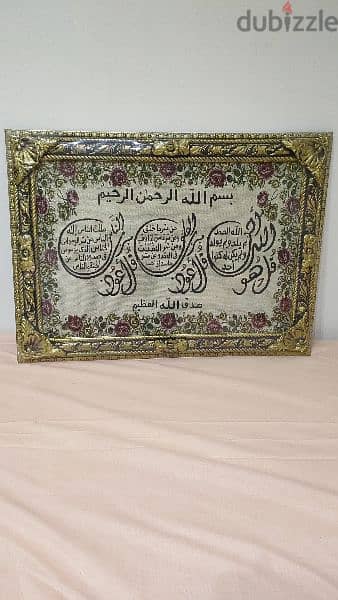 dubizzle
بسم الله الرحمن الرحيم
قل هو الله احد
الله الصمد
لم يلد ولم يولد
ولم يكن له كفوا
احد
قل اعوذ برب الفلق
من شر ما خلق
ومن شر غاسق اذا وقب
ومن شر النفاثات
في العقد ومن شر
قل اعوذ برب الناس
ملك الناس اله
الناس من شر الوسواس
الخناس الذي يوسوس
في صدور الناس
من الجنة والناس
صدق الله العظيم